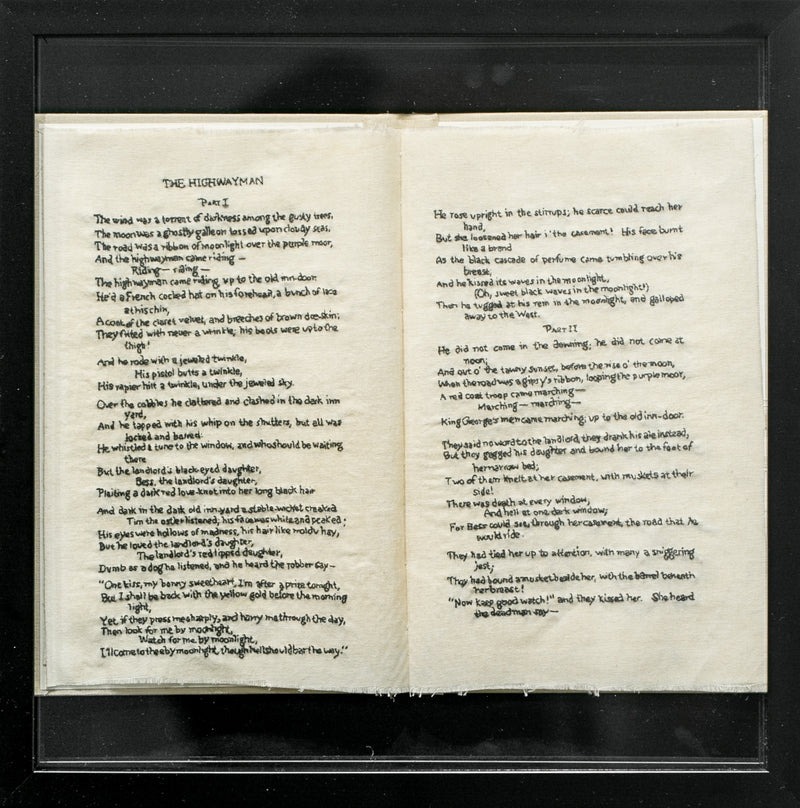 THE HIGHWAYMAN
PART I
The wind was a torrent of darkness among the gusty trees,
The moon was a ghostly galleon tossed upon cloudy seas,
The road was a ribbon of moonlight over the purple moor,
And the highwayman came riding —
Riding — riding —
The highwayman came riding, up to the old inn-door.
He'd a French cocked hat on his forehead, a bunch of lace
at his chin,
A coat of the claret velvet, and breeches of brown doe-skin;
They fitted with never a wrinkle; his boots were up to the
thigh!
And he rode with a jeweled twinkle,
His pistol butts a twinkle,
His rapier hilt a twinkle, under the jeweled sky.
Over the cobbles he clattered and clashed in the dark inn
yard,
And he tapped with his whip on the shutters, but all was
locked and barred:
He whistled a tune to the window, and who should be waiting
there
But the landlord's black-eyed daughter,
Bess, the landlord's daughter,
Plaiting a dark red love-knot into her long black hair
And dark in the dark old inn-yard a stable-wicket creaked
Tim the ostler listened; his face was white and peaked;
His eyes were hollows of madness, his hair like moldy hay,
But he loved the landlord's daughter,
The landlord's red lipped daughter,
Dumb as a dog he listened, and he heard the robber say—
"One kiss, my bonny sweetheart, I'm after a prize tonight,
But I shall be back with the yellow gold before the morning
light,
Yet if they press me sharply, and harry me through the day,
Then look for me by moonlight,
Watch for me by moonlight,
I'll come to thee by moonlight, though hell should bar the way."
He rose upright in the stirrups; he scarce could reach her
hand,
But she loosened her hair i' the casement! His face burnt
like a brand
As the black cascade of perfume came tumbling over his
breast;
And he kissed its waves in the moonlight,
(Oh, sweet black waves in the moonlight!)
Then he tugged at his rein in the moonlight, and galloped
away to the West.
PART II
He did not come in the dawning; he did not come at
noon;
And out o' the tawny sunset, before the rise o' the moon,
When the road was a gipsy's ribbon, looping the purple moor,
A red coat troop came marching—
Marching— marching—
King George's men came marching, up to the old inn-door.
They said no word to the landlord, they drank his ale instead,
But they gagged his daughter and bound her to the foot of
her narrow bed;
Two of them knelt at her casement, with muskets at their
side!
There was death at every window;
And hell at one dark window;
For Bess could see, through her casement, the road that he
would ride.
They had tied her up to attention, with many a sniggering
jest;
They had bound a musket beside her, with the barrel beneath
her breast!
"Now keep good watch!" and they kissed her. She heard
the dead man say—